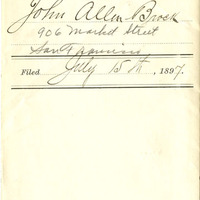 John Allen Brock
906 Market Street
San Francisco
Filed July 15th, 1897.